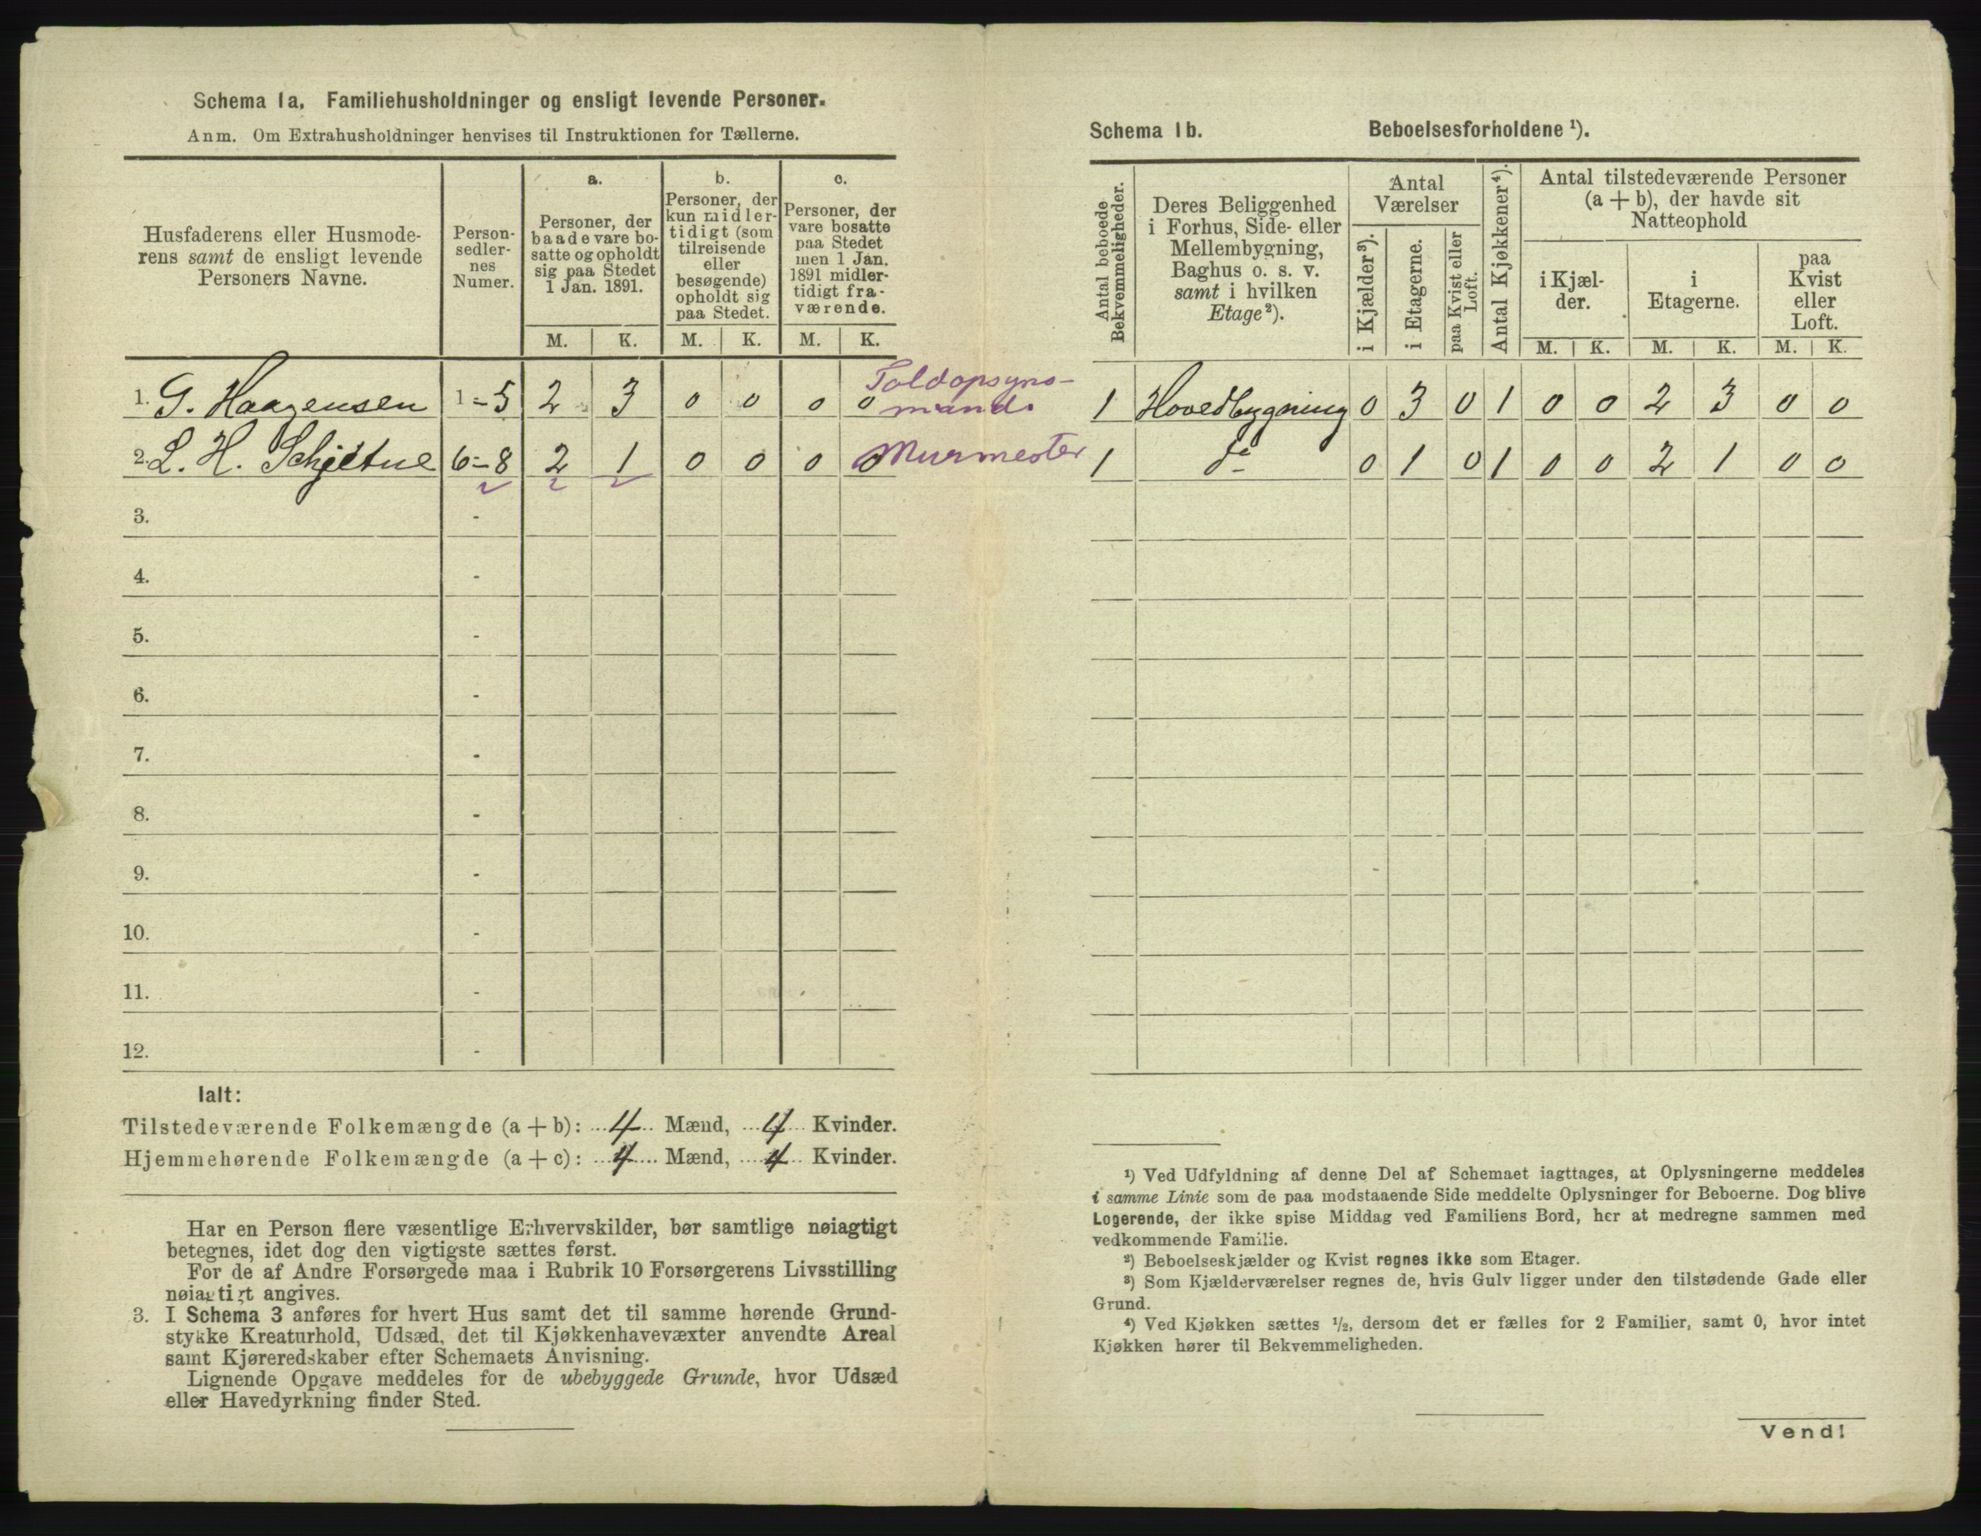 Schema 1a. Familiehusholdninger og ensligt levende Personer.
Anm. Om Extrahusholdninger henvises til Instruktionen for Tællerne.
Husfaderens eller Husmode-
rens samt de ensligt levende
Personers Navne.
Person-
sedler-
nes
Numer.
a.
Personer, der
baade vare bo-
satte og opholdt
sig paa Stedet
1 Jan. 1891.
b.
Personer, der
kun midler-
tidigt (som
tilreisende
eller
besøgende)
opholdt sig
paa Stedet.
c.
Personer, der
vare bosatte
paa Stedet
men 1 Jan.
1891 midler-
tidigt fra-
værende.
M. K. M. K. M. K.
1. G. Haagensen 1-5 2 3 0 0 0 0 Toldopsyns-
mand.
2. L. H. Schjetne 6-8 2 1 0 0 0 0 Murmester
3. -
4. -
5. -
6. -
7. -
8. -
9. -
10. -
11. -
12. -
Ialt:
Tilstedeværende Folkemængde (a + b): 4 Mænd, 4 Kvinder.
Hjemmehørende Folkemængde (a + c): 4 Mænd, 4 Kvinder.
Har en Person flere væsentlige Erhvervskilder, bør samtlige nøiagtigt
betegnes, idet dog den vigtigste sættes først.
For de af Andre Forsørgede maa i Rubrik 10 Forsørgerens Livsstilling
nøiagtigt angives.
3. I Schema 3 anføres for hvert Hus samt det til samme hørende Grund-
stykke Kreaturhold, Udsæd, det til Kjøkkenhavevæxter anvendte Areal
samt Kjøreredskaber efter Schemaets Anvisning.
Lignende Opgave meddeles for de ubebyggede Grunde, hvor Udsæd
eller Havedyrkning finder Sted.
Schema 1b. Beboelsesforholdene ¹).
Antal beboede
Bekvemmeligheder.
Deres Beliggenhed
i Forhus, Side- eller
Mellembygning,
Baghus o. s. v.
samt i hvilken
Etage ²).
Antal
Værelser
i Kjælder ³).
i Etagerne.
paa Kvist eller
Loft.
Antal Kjøkkener ⁴).
Antal tilstedeværende Personer
(a + b), der havde sit
Natteophold
i Kjæl-
der.
i
Etagerne.
paa
Kvist
eller
Loft.
M. K. M. K. M. K.
1 Hovedbygning 0 3 0 1 0 0 2 3 0 0
1 do 0 1 0 1 0 0 2 1 0 0
¹) Ved Udfyldning af denne Del af Schemaet iagttages, at Oplysningerne meddeles
i samme Linie som de paa modstaaende Side meddelte Oplysninger for Beboerne. Dog blive
Logerende, der ikke spise Middag ved Familiens Bord, her at medregne sammen med
vedkommende Familie.
²) Beboelseskjælder og Kvist regnes ikke som Etager.
³) Som Kjælderværelser regnes de, hvis Gulv ligger under den tilstødende Gade eller
Grund.
⁴) Ved Kjøkken sættes ½, dersom det er fælles for 2 Familier, samt 0, hvor intet
Kjøkken hører til Bekvemmeligheden.
Vend!